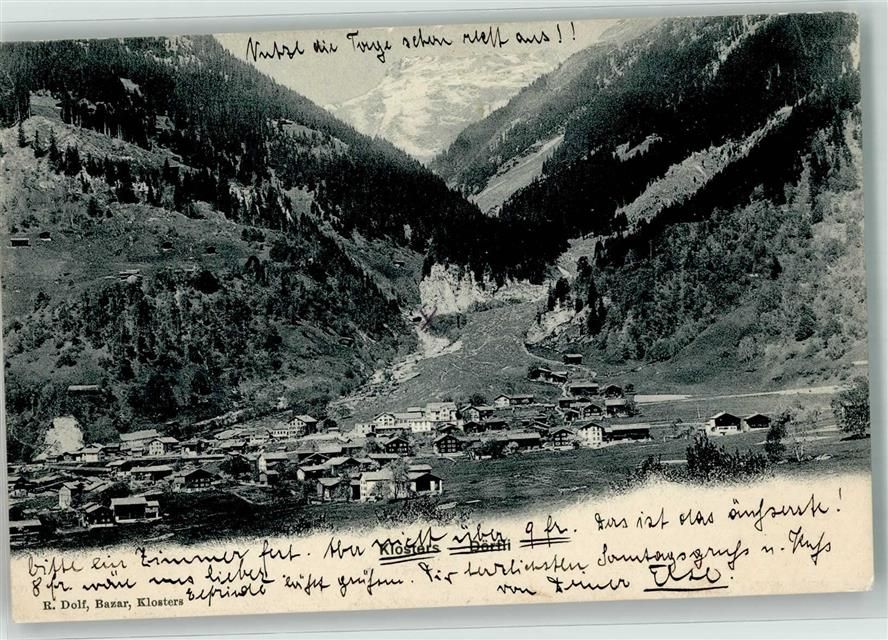 Nutzt die Tage schon recht aus!!
Bitte ein Zimmer fest. Aber nicht über 9 fr. Das ist das äußerste!
Klosters Dörfli
8 fr. wäre uns lieber. lässt grüßen. Dir herzlichsten Sonntagsgruß u. Kuß
von Deiner Else.
R. Dolf, Bazar, Klosters